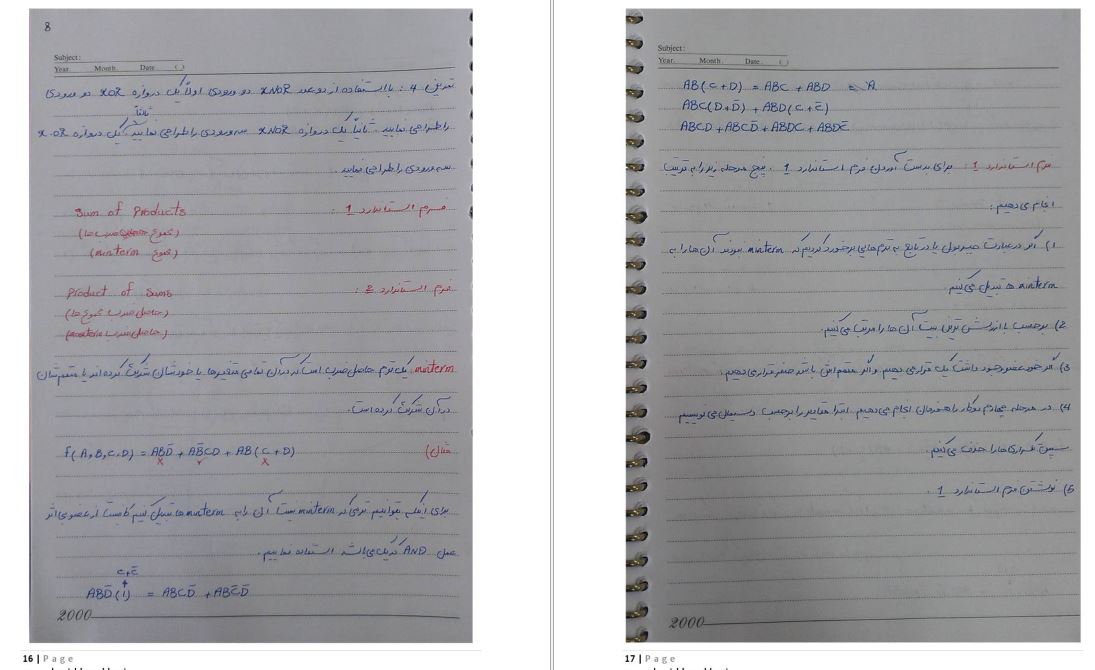 8
Subject:
Year. Month. Date. ( )
تمرین 4: با استفاده از دو عدد XNOR دو ورودی اولاً یک دروازه XOR دو ورودی
ثالثاً
را طراحی نمایید. ثانیاً یک دروازه XNOR سه ورودی را طراحی نمایید. یک دروازه X-OR
سه ورودی را طراحی نمایید.
فرم استاندارد 1: Sum of Products
(مجموع حاصلضرب ها)
(مجموع minterm)
فرم استاندارد 2: Product of Sums
(حاصلضرب مجموع ها)
(حاصلضرب
minterm: یک ترم حاصلضرب است که در آن تمامی متغیرها یا خودشان شرکت کرده اند یا متمم شان
در آن شرکت کرده است.
مثال) f(A,B,C,D) = ABD̅ + AB̅CD + AB(C+D)
برای اینکه بتوانیم ترمی که minterm نیست آن را به minterm ها تبدیل کنیم کافیست از عضو بی اثر
عمل AND که یک می باشد استفاده نماییم.
C+C̅
ABD̅(1) = ABCD̅ + ABC̅D̅
2000
16 | Page
Subject:
Year. Month. Date. ( )
AB(C+D) = ABC + ABD
ABC(D+D̅) + ABD(C+C̅)
ABCD + ABCD̅ + ABDC + ABDC̅
فرم استاندارد 1: برای بدست آوردن فرم استاندارد 1، پنج مرحله زیر را به ترتیب
انجام می دهیم:
1) اگر در عبارت جبر بول یا در تابع به ترم هایی برخورد کردیم که minterm نبودند آن ها را به
minterm ها تبدیل می کنیم.
2) برحسب با ارزش ترین بیت آن ها را مرتب می کنیم.
3) اگر خود عضو وجود داشت یک قرار می دهیم و اگر متمم اش باشد صفر قرار می دهیم.
4) در مرحله چهارم دو کار را همزمان انجام می دهیم. ابتدا مقادیر را برحسب دسیمال می نویسیم
سپس تکراری ها را حذف می کنیم.
5) نوشتن فرم استاندارد 1.
2000
17 | Page